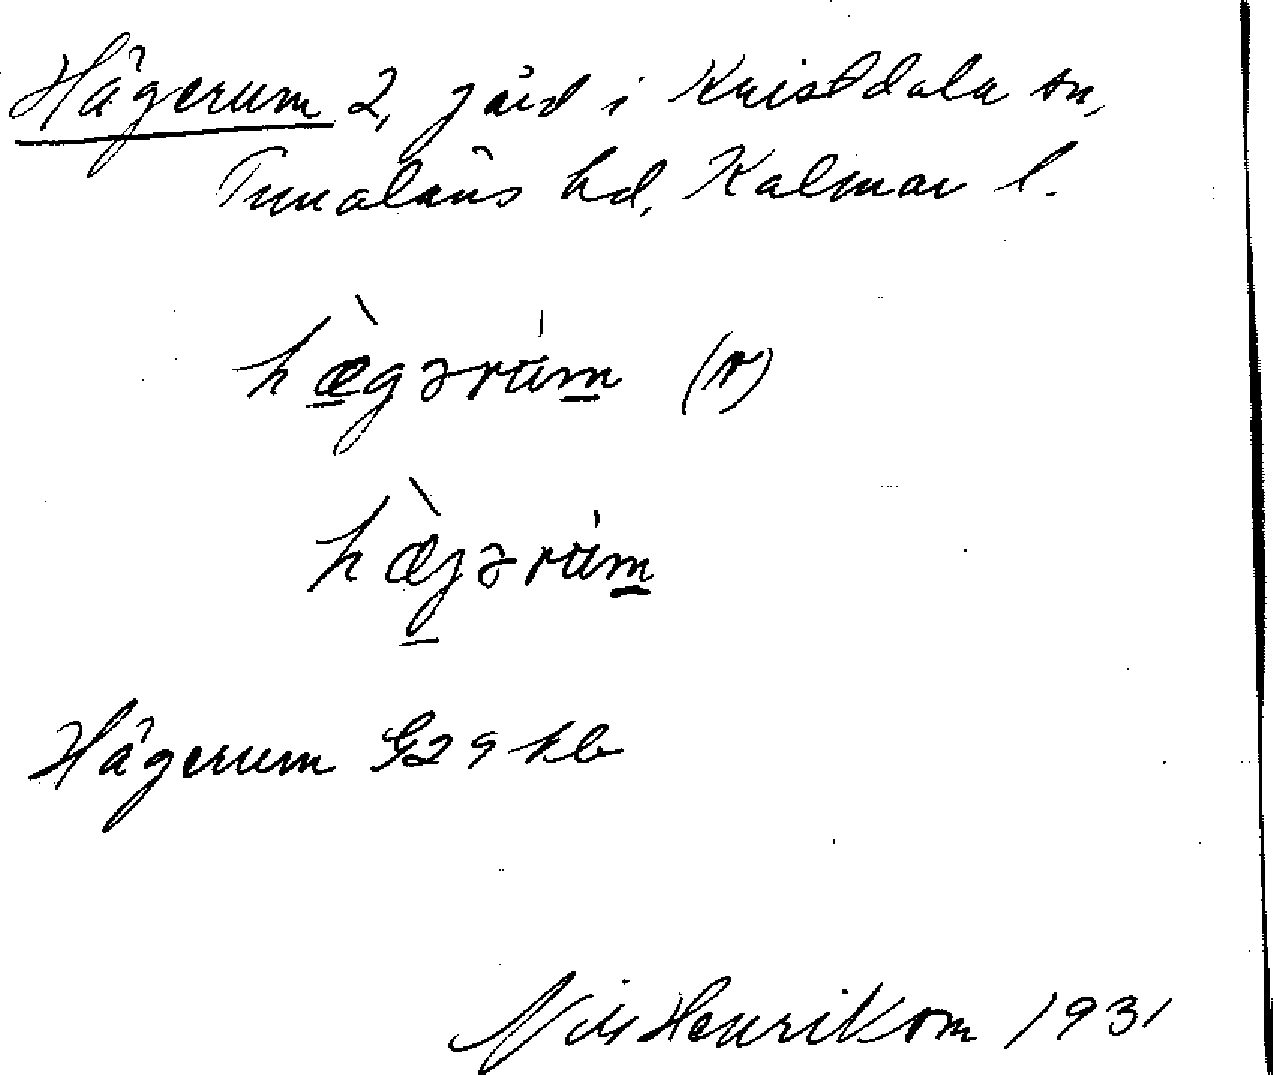 Hägerum 2, gård i Kristdala sn,
Tunaläns hd, Kalmar l.
hæ̀gərùm (r)
hæ̀gərùm
Hägerum G29 kb
Nils Henrikson 1931